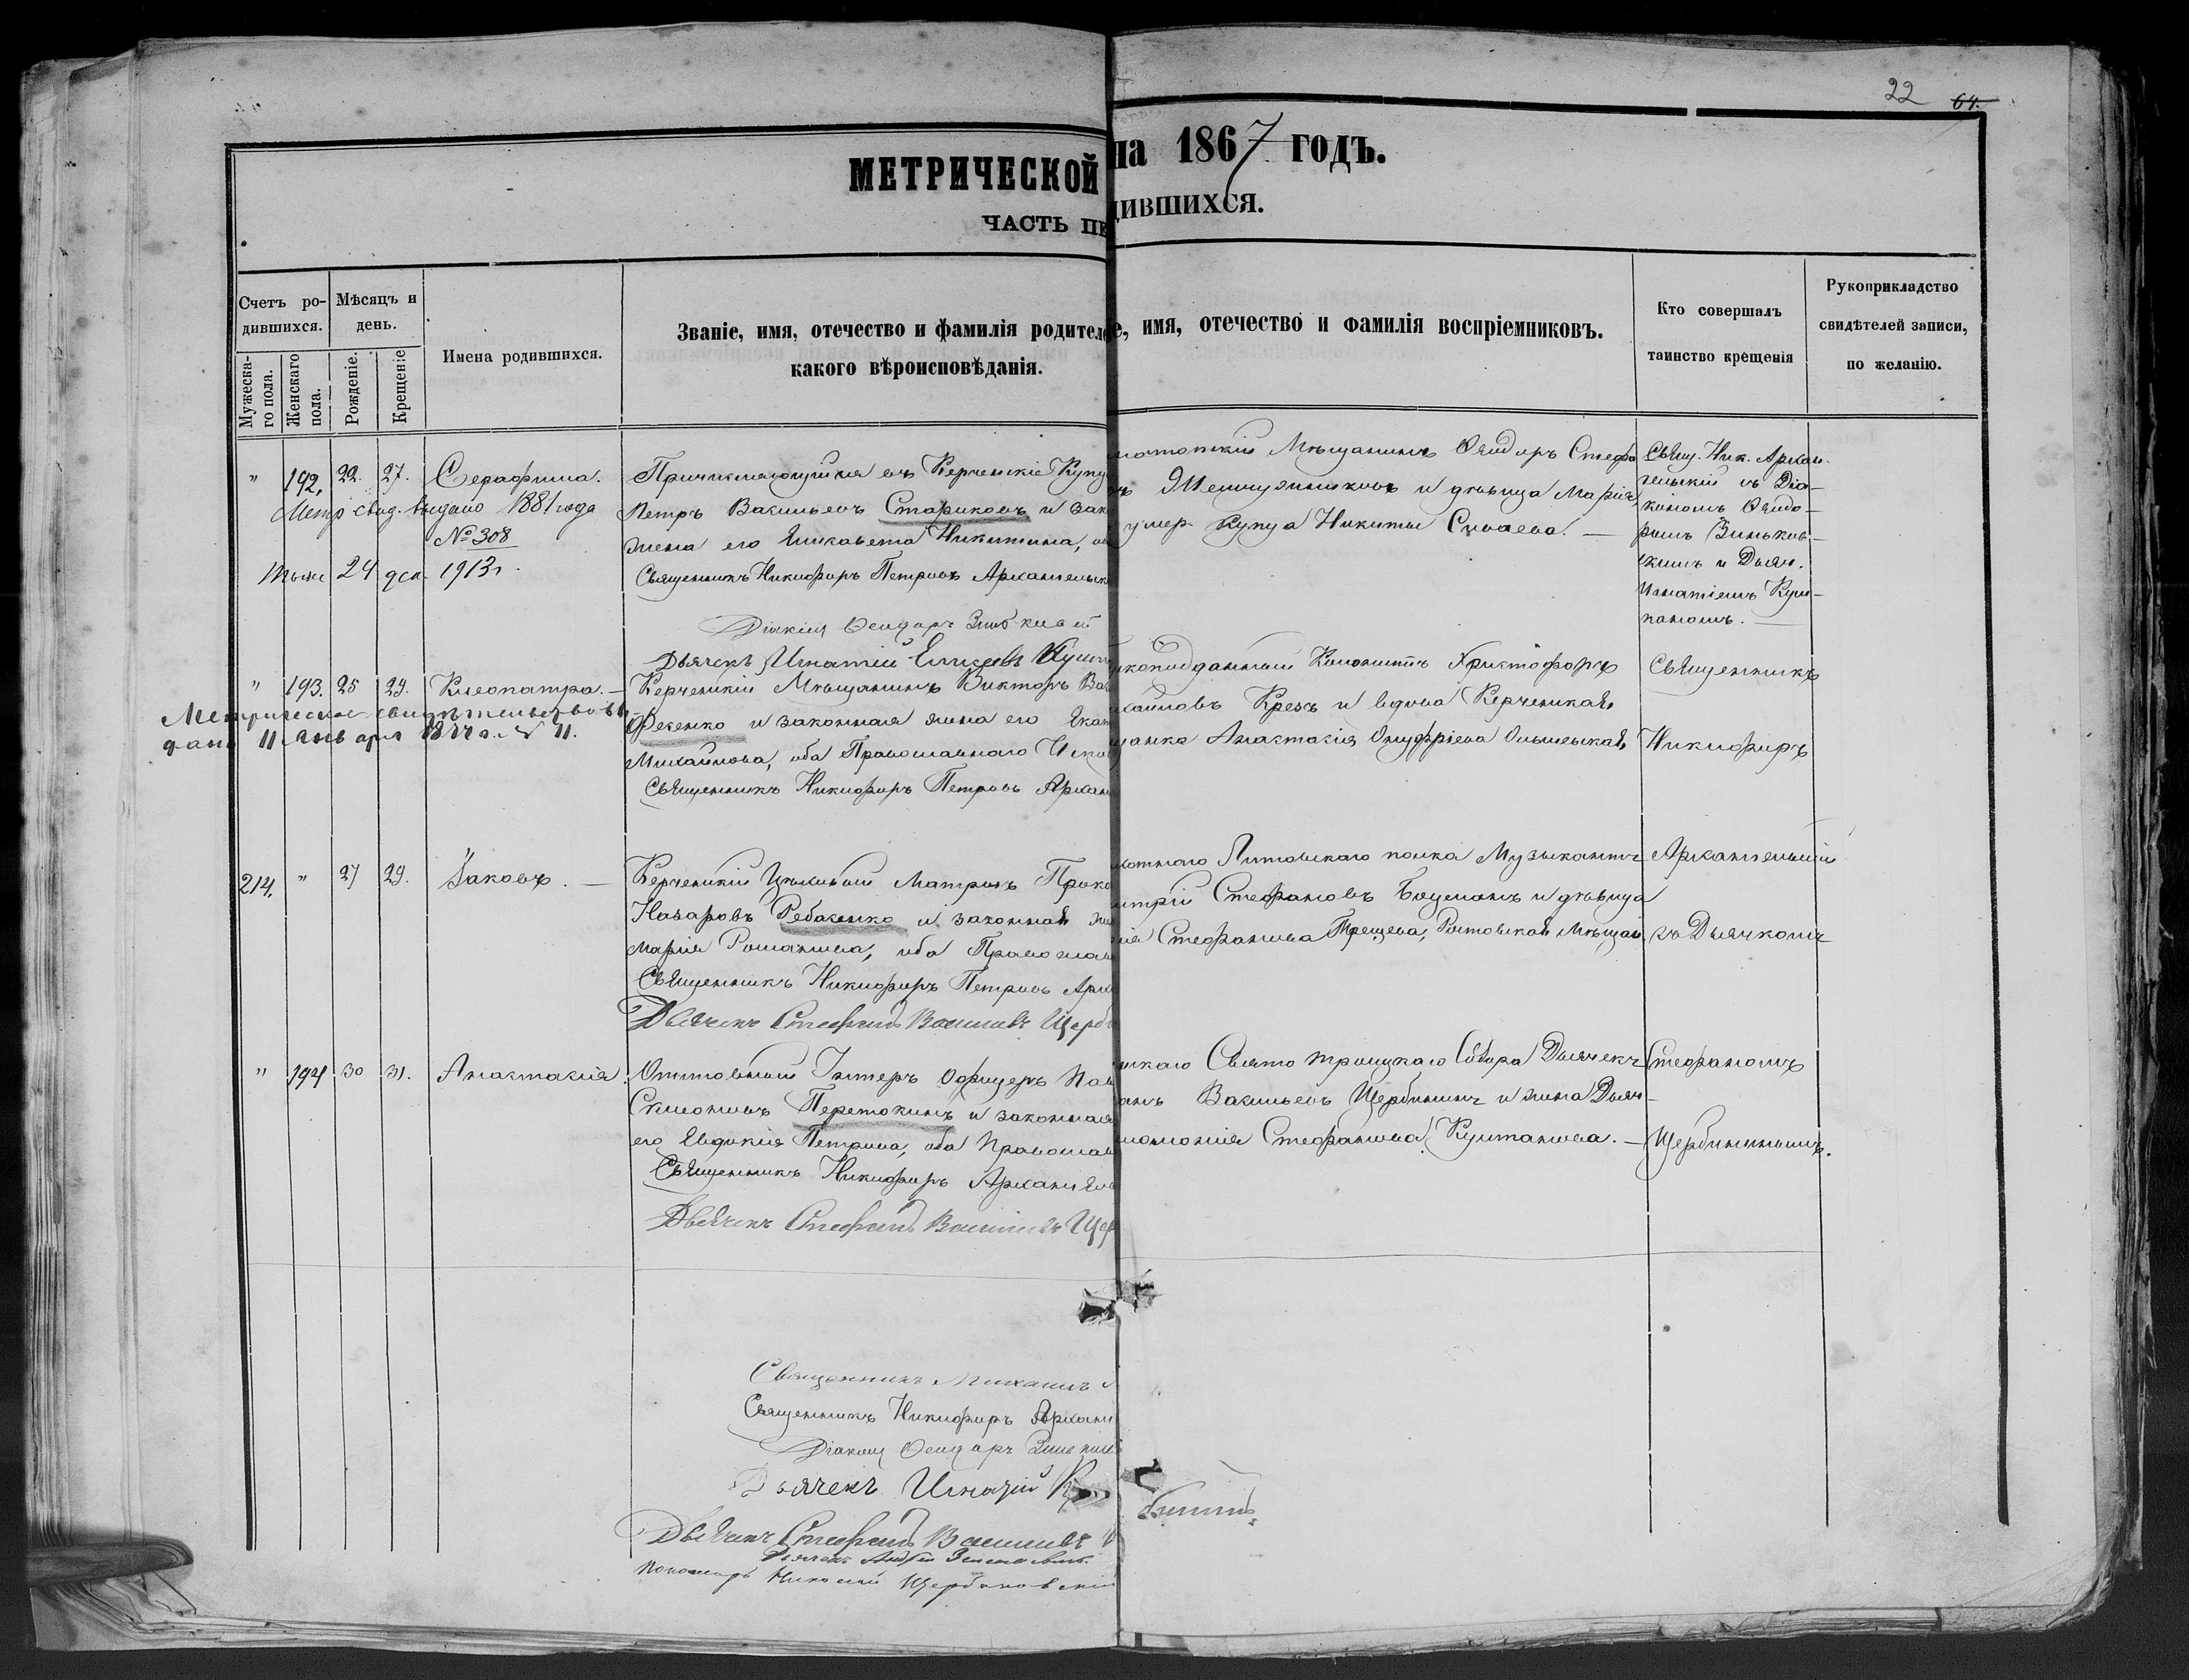 22 64.
МЕТРИЧЕСКОЙ
на 1867 годъ.
ЧАСТЬ ПЕ
дившихся.
Счетъ ро-
дившихся.
Мужеска-
го пола.
Женскаго
пола.
Мѣсяцъ и
день.
Рожденіе.
Крещеніе
Имена родившихся.
Званіе, имя, отечество и фамилія родителе
какого вѣроисповѣданія.
е, имя, отечество и фамилія воспріемниковъ.
Кто совершалъ
таинство крещенія
Рукоприкладство
свидѣтелей записи,
по желанію.
" 192, 22. 27. Серафима.
Метр. свид. выдано 1881 года
№ 308
24 дек. 1913 г.
Причисляющійся въ Керченскіе Купц
Петръ Васильевъ Стариковъ и зак
жена его Елисавета Никитина,
Священникъ Никифоръ Петровъ Архангельск
Діаконъ Феодоръ
Дьячекъ Игнатій Елисеевъ
Мѣщанинъ Феодоръ Стефа
и дѣвица Марія,
умер. Купца Никиты
Свящ. Ник. Архан-
гельскій съ Діа-
кономъ Феодо-
ромъ Зиньков-
скимъ и Дьяч.
Игнатіемъ Куш-
" 193. 25 29. Клеопатра.
Метрическое свидѣтельство вы
дано 11 Января № 11.
Керченскій Мѣщанинъ Викторъ Вас
Фесенко и законная жена его Екат
Михайлова, оба Православнаго Испов
Священникъ Никифоръ Петровъ Архан
подданный Колонистъ Христофоръ
Крезъ и вдова Керченская
щанка Анастасія Онуфріева Ольшевская
Священникъ
Никифоръ
214. " 27 29. Іаковъ.
Керченскій Матросъ Проко
Назаровъ Ребасенко и законная же
Марія Романова, оба Православ
Священникъ Никифоръ Петровъ Арха
Дьячекъ Стефанъ Васильевъ Щерби
Литовскаго полка Музыкантъ
итрій Стефановъ Боцманъ и дѣвица
ія Стефанова Трещева, Ростовская Мѣщан.
Архангельскій
съ Дьячкомъ
" 194 30 31. Анастасія.
Отставный Унтеръ Офицеръ Пав
Перетокинъ и законная
его Евдокія Петрова, оба Православ
Священникъ Никифоръ Архангел
Дьячекъ Стефанъ Васильевъ Щер
скаго Свято Троицкаго Собора Дьячекъ
анъ Васильевъ Щербининъ и жена Дьяч-
Стефанова
Стефаномъ
Щербининымъ.
Священникъ Михаилъ
Священникъ Никифоръ Арханг
Діаконъ Феодоръ
Дьячекъ Игнатій К
Дьячекъ Стефанъ Васильевъ
Дьячекъ Андрей
Пономарь Николай Щербаковскій